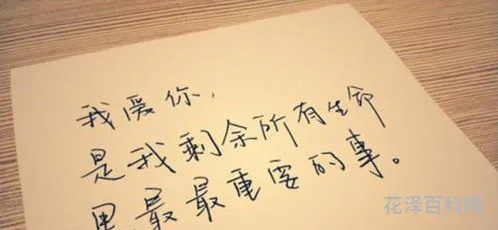 我爱你，
是我剩余所有生命
里最最重要的事。
花泽百科网